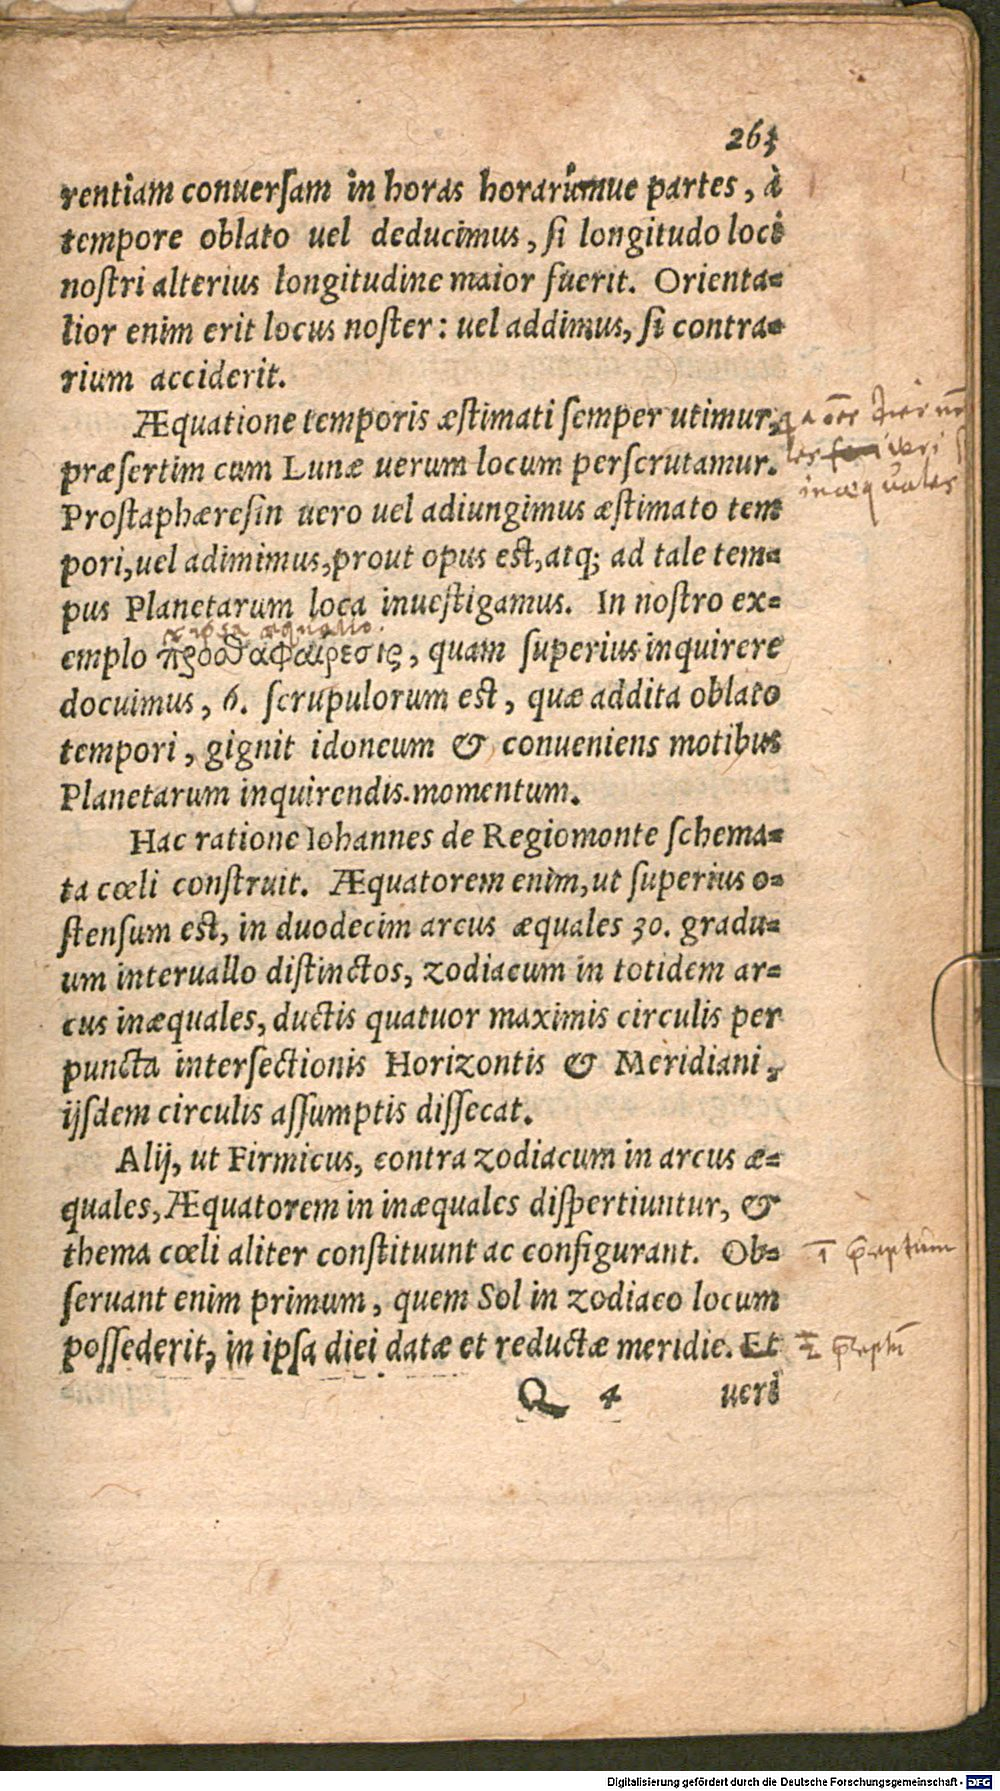 263
rentiam conuersam in horas horarúmue partes, à
tempore oblato uel deducimus, si longitudo loci
nostri alterius longitudine maior fuerit. Orienta=
lior enim erit locus noster: uel addimus, si contra=
rium acciderit.
Æquatione temporis æstimati semper utimur,
præsertim cum Lunæ uerum locum perscrutamur.
inæquales
Prostaphæresin uero uel adiungimus æstimato tem
pori, uel adimimus, prout opus est, atq; ad tale tem=
pus Planetarum loca inuestigamus. In nostro ex=
emplo προσθαφαιρεσις, quam superius inquirere
docuimus, 6. scrupulorum est, quæ addita oblato
tempori, gignit idoneum & conueniens motibus
Planetarum inquirendis momentum.
Hac ratione Iohannes de Regiomonte schema=
ta cœli construit. Æquatorem enim, ut superius o=
stensum est, in duodecim arcus æquales 30. gradu=
um interuallo distinctos, zodiacum in totidem ar=
cus inæquales, ductis quatuor maximis circulis per
puncta intersectionis Horizontis & Meridiani,
ijsdem circulis assumptis dissecat.
Alij, ut Firmicus, contra zodiacum in arcus æ=
quales, Æquatorem in inæquales dispertiuntur, &
thema cœli aliter constituunt ac configurant. Ob=
seruant enim primum, quem Sol in zodiaco locum
possederit, in ipsa diei datæ et reductæ meridie. Et
Q 4 ueri
Digitalisierung gefördert durch die Deutsche Forschungsgemeinschaft - DFG